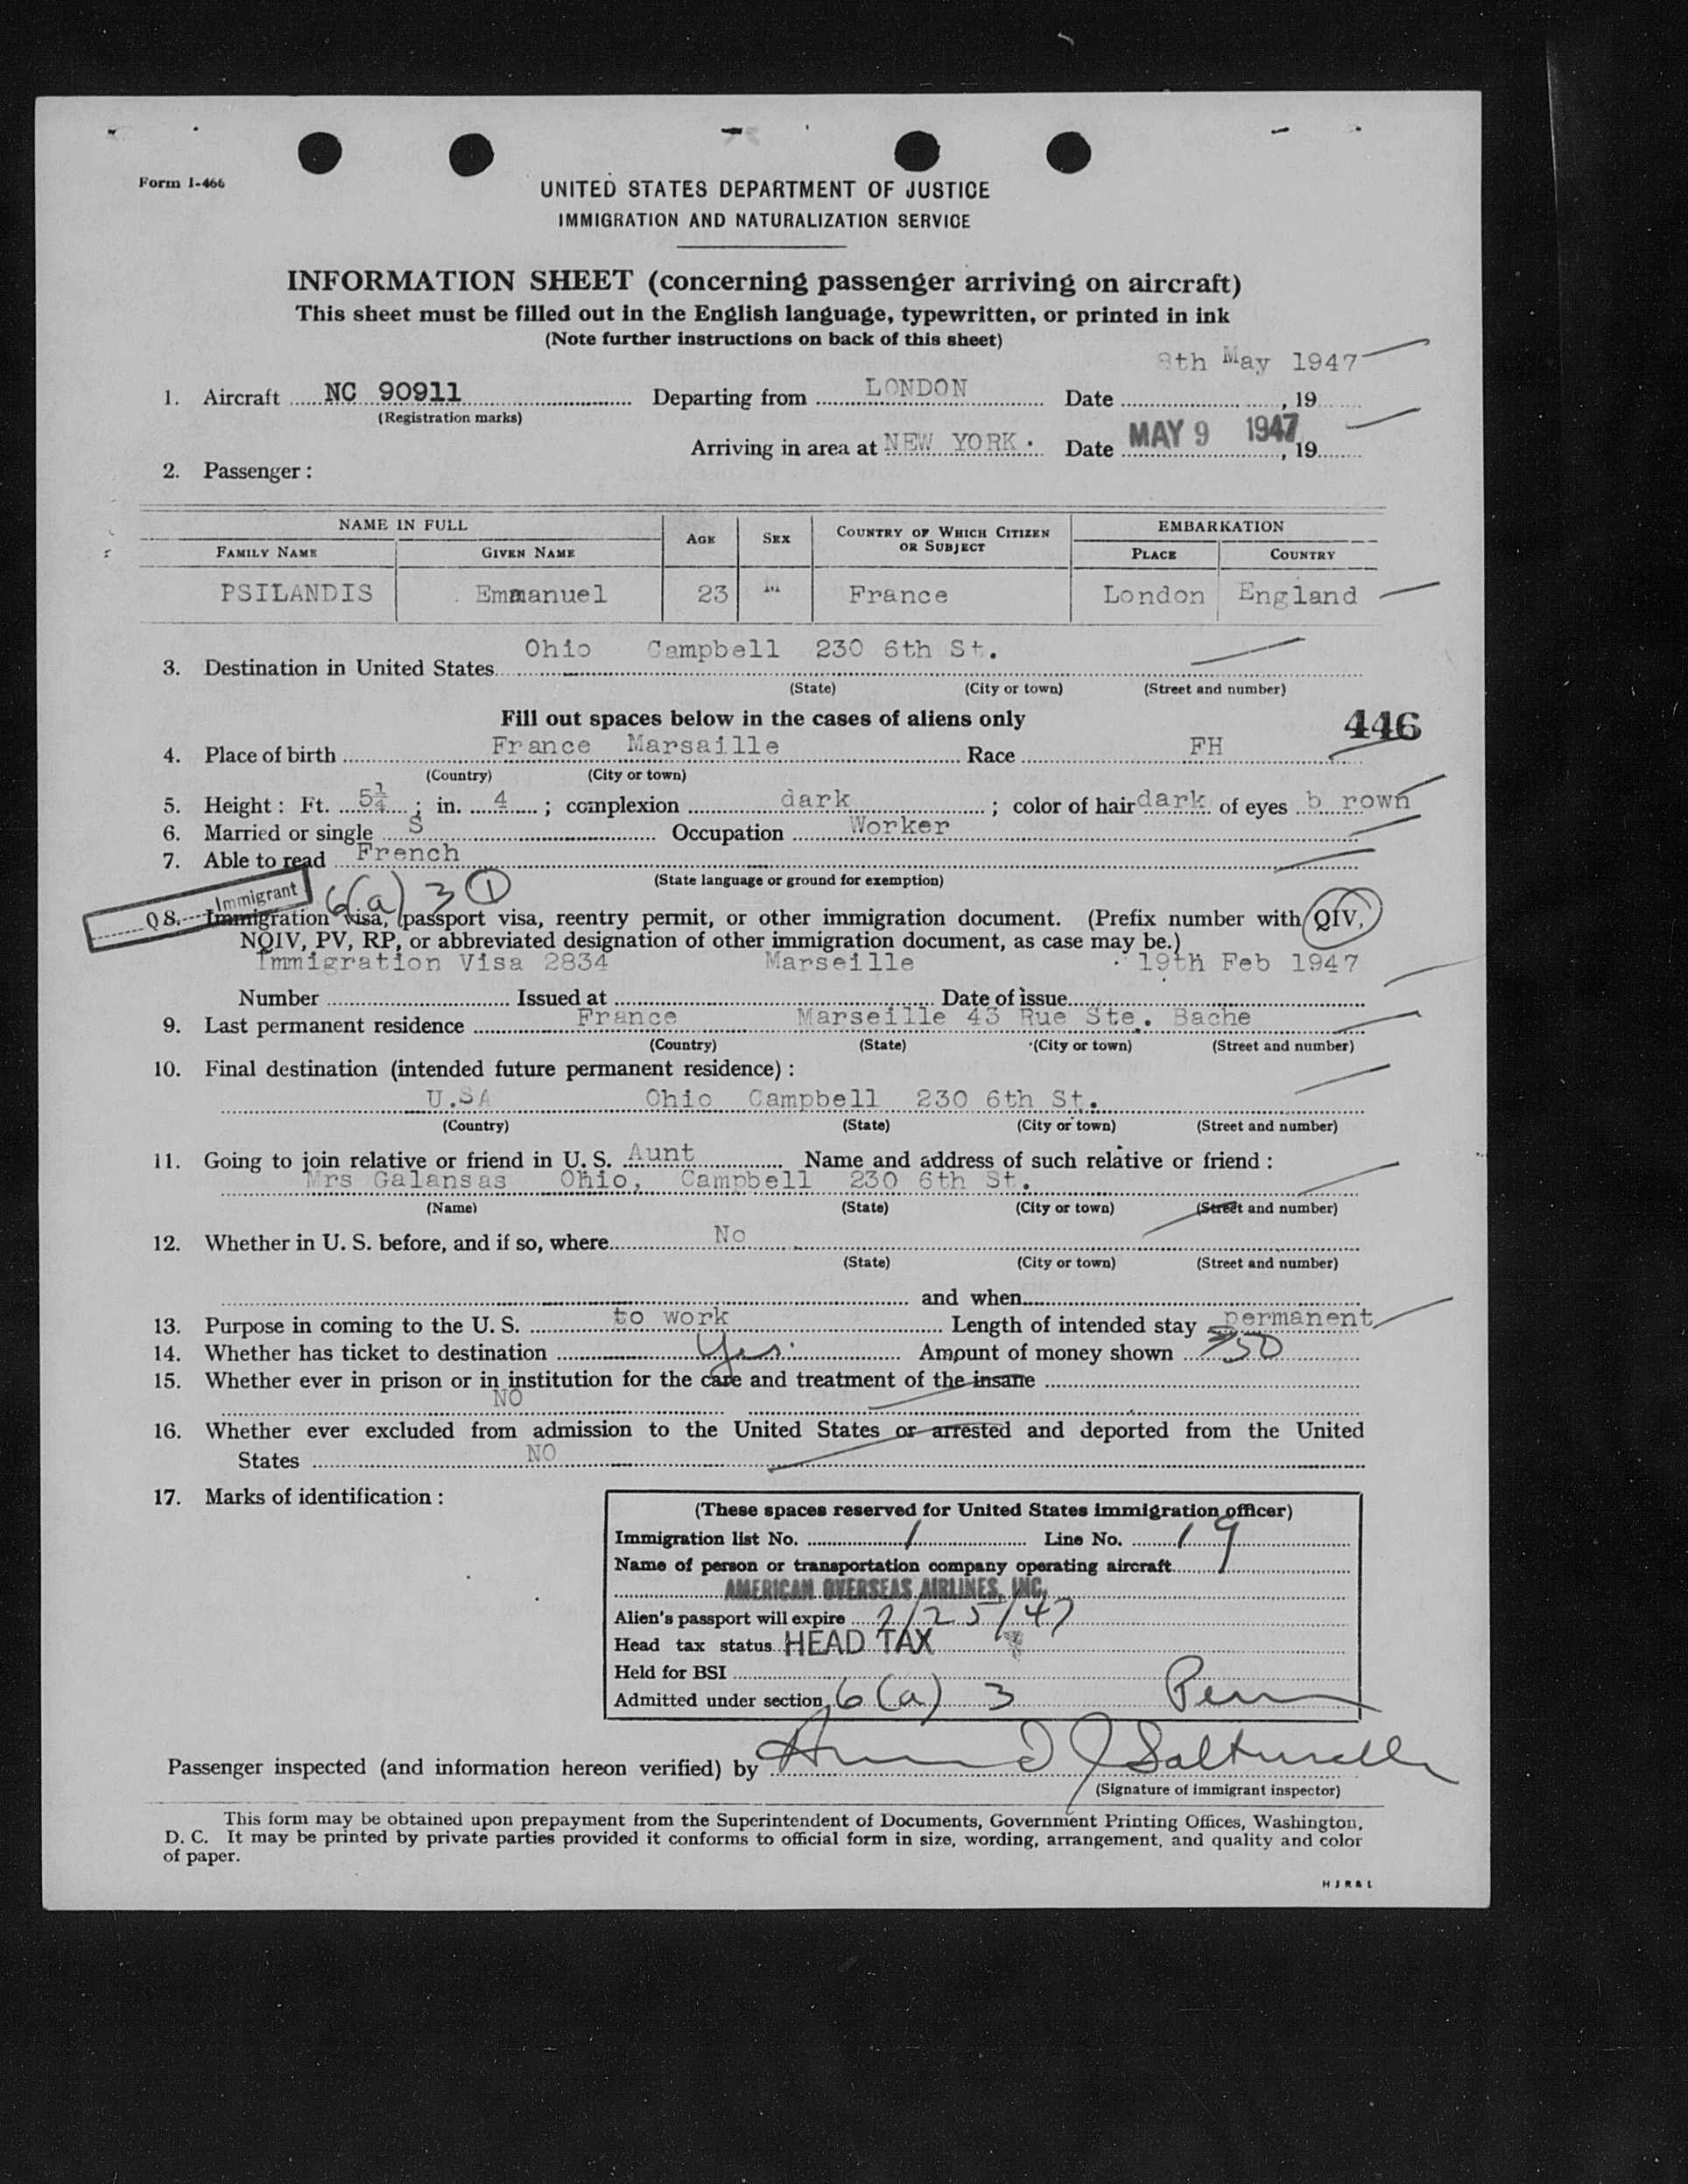 Form I-466
UNITED STATES DEPARTMENT OF JUSTICE
IMMIGRATION AND NATURALIZATION SERVICE
INFORMATION SHEET (concerning passenger arriving on aircraft)
This sheet must be filled out in the English language, typewritten, or printed in ink
(Note further instructions on back of this sheet)
8th May 1947
1. Aircraft NC 90911 Departing from LONDON Date , 19
(Registration marks)
Arriving in area at NEW YORK. Date MAY 9 1947, 19
2. Passenger :
NAME IN FULL AGE SEX COUNTRY OF WHICH CITIZEN OR SUBJECT EMBARKATION
FAMILY NAME GIVEN NAME PLACE COUNTRY
PSILANDIS Emmanuel 23 M France London England
Ohio Campbell 230 6th St.
3. Destination in United States
(State) (City or town) (Street and number)
Fill out spaces below in the cases of aliens only
446
4. Place of birth France Marsaille Race FH
(Country) (City or town)
5. Height : Ft. 5¼ ; in. 4 ; complexion dark ; color of hair dark of eyes b rown
6. Married or single S Occupation Worker
7. Able to read French
(State language or ground for exemption)
Immigrant 6(a) 3 1
Q 8. Immigration visa, passport visa, reentry permit, or other immigration document. (Prefix number with QIV,
NQIV, PV, RP, or abbreviated designation of other immigration document, as case may be.)
Immigration Visa 2834 Marseille 19th Feb 1947
Number Issued at Date of issue
9. Last permanent residence France Marseille 43 Rue Ste. Bache
(Country) (State) (City or town) (Street and number)
10. Final destination (intended future permanent residence) :
U.SA Ohio Campbell 230 6th St.
(Country) (State) (City or town) (Street and number)
11. Going to join relative or friend in U. S. Aunt Name and address of such relative or friend :
Mrs Galansas Ohio, Campbell 230 6th St.
(Name) (State) (City or town) (Street and number)
12. Whether in U. S. before, and if so, where No
(State) (City or town) (Street and number)
and when
13. Purpose in coming to the U. S. to work Length of intended stay permanent
14. Whether has ticket to destination Yes Amount of money shown 50
15. Whether ever in prison or in institution for the care and treatment of the insane
NO
16. Whether ever excluded from admission to the United States or arrested and deported from the United
States NO
17. Marks of identification :
(These spaces reserved for United States immigration officer)
Immigration list No. 1 Line No. 19
Name of person or transportation company operating aircraft
AMERICAN OVERSEAS AIRLINES, INC.
Alien's passport will expire /25/47
Head tax status HEAD TAX
Held for BSI
Admitted under section 6(a) 3
Passenger inspected (and information hereon verified) by
(Signature of immigrant inspector)
This form may be obtained upon prepayment from the Superintendent of Documents, Government Printing Offices, Washington,
D. C. It may be printed by private parties provided it conforms to official form in size, wording, arrangement, and quality and color
of paper.
HJR&L